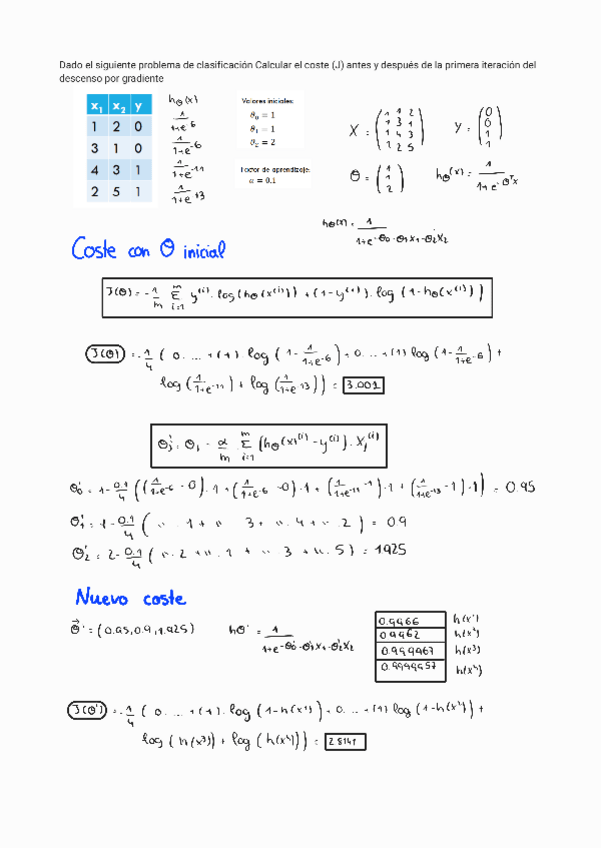 Dado el siguiente problema de clasificación Calcular el coste (J) antes y después de la primera iteración del
descenso por gradiente
x₁ x₂ y
1 2 0
3 1 0
4 3 1
2 5 1
hθ(x)
1/1+e^-6
1/1+e^-6
1/1+e^-11
1/1+e^-13
Valores iniciales:
θ₀ = 1
θ₁ = 1
θ₂ = 2
Factor de aprendizaje:
α = 0.1
X = (1 1 2
1 3 1
1 4 3
1 2 5)
Y = (0
0
1
1)
θ = (1
1
2)
hθ(x) = 1/1+e^-θᵀx
hθ(x) = 1/1+e^-θ₀-θ₁x₁-θ₂x₂
Coste con θ inicial
J(θ) = -1/m Σ_{i=1}^{m} y⁽ⁱ⁾ · log(hθ(x⁽ⁱ⁾)) + (1-y⁽ⁱ⁾) · log (1-hθ(x⁽ⁱ⁾))
J(θ) = -1/4 ( 0. ... + (1) log (1 - 1/1+e^-6) + 0. ... + (1) log (1 - 1/1+e^-6) +
log (1/1+e^-11) + log (1/1+e^-13)) = 3.001
θ'ⱼ = θⱼ - α/m Σ_{i=1}^{m} (hθ(x⁽ⁱ⁾ - y⁽ⁱ⁾) · Xⱼ⁽ⁱ⁾
θ₀' = 1 - 0.1/4 ((1/1+e^-6 - 0) · 1 + (1/1+e^-6 - 0) · 1 + (1/1+e^-11 - 1) · 1 + (1/1+e^-13 - 1) · 1) = 0.95
θ₁' = 1 - 0.1/4 ( " . 1 + " 3 + " . 4 + " . 2 ) = 0.9
θ₂' = 2 - 0.1/4 ( " . 2 + " . 1 + " . 3 + " . 5 ) = 1925
Nuevo coste
θ' = (0.95, 0.9, 1.925)
hθ' = 1/1+e^-θ₀'-θ₁'x₁-θ₂'x₂
0.9966 h(x¹)
0.9962 h(x²)
0.999967 h(x³)
0.9999957 h(x⁴)
J(θ') = -1/4 ( 0. ... + (1) . log (1-h(x¹)) + 0. ... + (1) log (1-h(x²)) +
log (h(x³)) + log (h(x⁴))) =